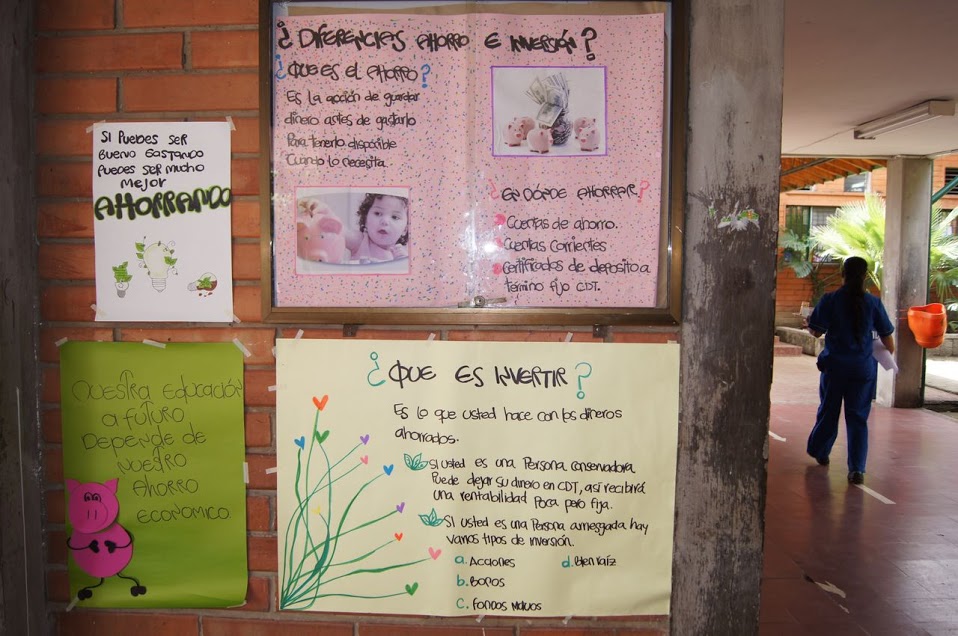 SI PUEDES SER
BUENO GASTANDO
PUEDES SER MUCHO
MEJOR
AHORRANDO
¿ DIFERENCIAS AHORRO E INVERSIÓN?
¿QUE ES EL AHORRO?
Es la acción de guardar
dinero antes de gastarlo
Para tenerlo disponible
Cuando lo necesita.
¿EN DÓNDE AHORRAR?
Cuentas de ahorro.
Cuentas Corrientes
Certificados de deposito a
término fijo CDT.
NUESTRA EDUCACIÓN
A FUTURO
DEPENDE DE
NUESTRO
AHORRO
ECONOMICO.
¿QUE ES INVERTIR?
Es lo que usted hace con los dineros
ahorrados.
Si usted es una Persona conservadora
Puede dejar su dinero en CDT, así recibirá
una rentabilidad Poca pero fija.
Si usted es una Persona arriesgada hay
varios tipos de inversión.
a. Acciones d. Bien raíz
b. Bonos
c. Fondos Mutuos